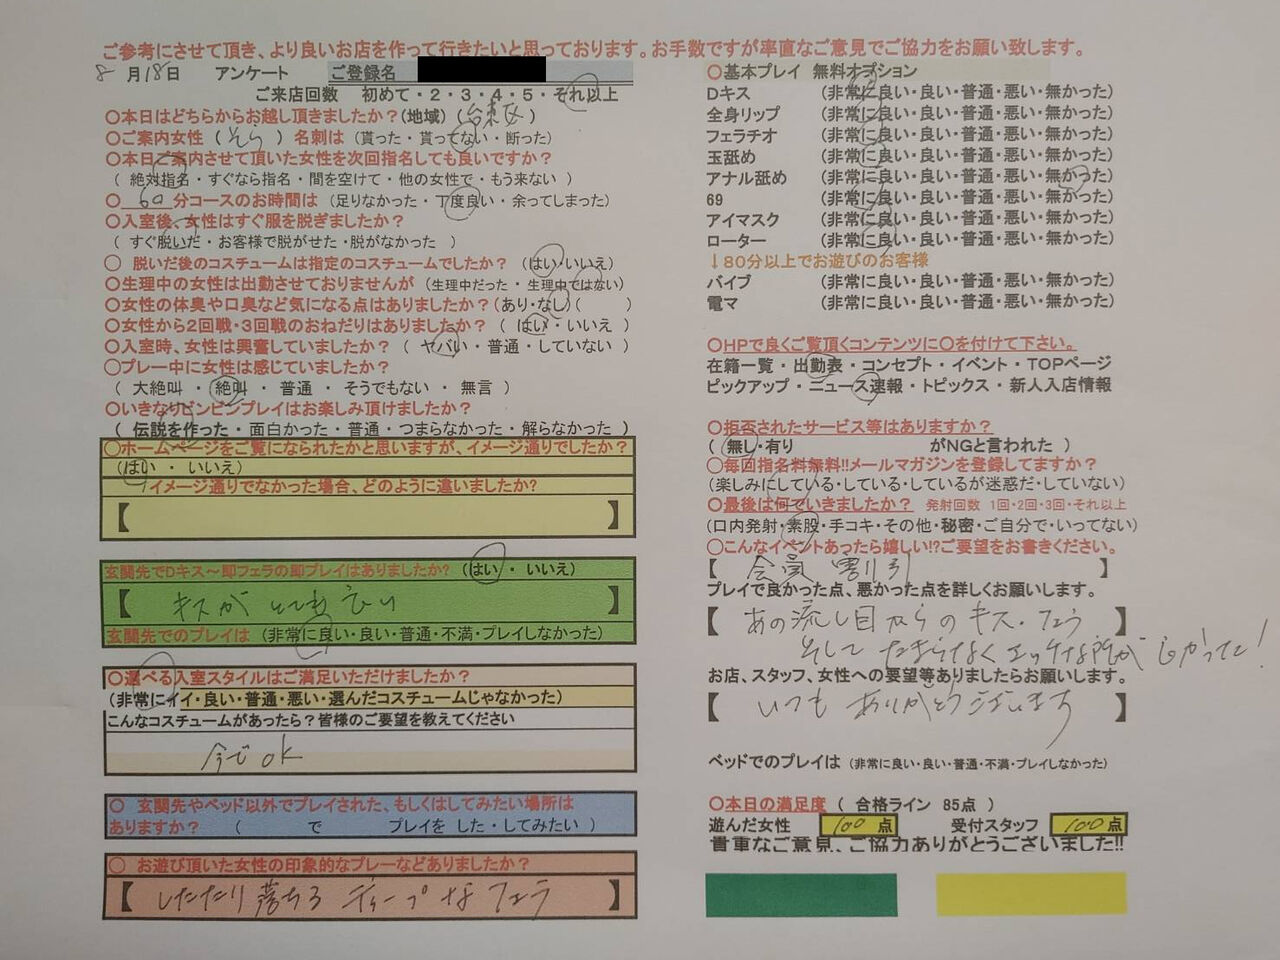 ご参考にさせて頂き、より良いお店を作って行きたいと思っております。お手数ですが率直なご意見でご協力をお願い致します。
8月18日 アンケート ご登録名
ご来店回数 初めて・2・3・4・5・それ以上
〇本日はどちらからお越し頂きましたか?(地域)(台東区)
〇ご案内女性(そら)名刺は(貰った・貰ってない・断った)
〇本日ご案内させて頂いた女性を次回指名しても良いですか?
(絶対指名・すぐなら指名・間を空けて・他の女性で・もう来ない)
〇 60分コースのお時間は(足りなかった・丁度良い・余ってしまった)
〇入室後、女性はすぐ服を脱ぎましたか?
(すぐ脱いだ・お客様で脱がせた・脱がなかった)
〇 脱いだ後のコスチュームは指定のコスチュームでしたか?(はい・いいえ)
〇生理中の女性は出勤させておりませんが(生理中だった・生理中ではない)
〇女性の体臭や口臭など気になる点はありましたか?(あり・なし)( )
〇女性から2回戦・3回戦のおねだりはありましたか?(はい・いいえ)
〇入室時、女性は興奮していましたか?(ヤバい・普通・していない)
〇プレー中に女性は感じていましたか?
(大絶叫・絶叫・普通・そうでもない・無言)
〇いきなりビンビンプレイはお楽しみ頂けましたか?
(伝説を作った・面白かった・普通・つまらなかった・解らなかった)
〇ホームページをご覧になられたかと思いますが、イメージ通りでしたか?
(はい・いいえ)
イメージ通りでなかった場合、どのように違いましたか?
【 】
玄関先でDキス～即フェラの即プレイはありましたか?(はい・いいえ)
【 キスが とても よい 】
玄関先でのプレイは(非常に良い・良い・普通・不満・プレイしなかった)
〇選べる入室スタイルはご満足いただけましたか?
(非常にイイ・良い・普通・悪い・選んだコスチュームじゃなかった)
こんなコスチュームがあったら?皆様のご要望を教えてください
今でOK
〇 玄関先やベッド以外でプレイされた、もしくはしてみたい場所は
ありますか?( で プレイを した・してみたい)
〇 お遊び頂いた女性の印象的なプレーなどありましたか?
【 したたり落ちる ディープなフェラ 】
〇基本プレイ 無料オプション
Dキス (非常に良い・良い・普通・悪い・無かった)
全身リップ (非常に良い・良い・普通・悪い・無かった)
フェラチオ (非常に良い・良い・普通・悪い・無かった)
玉舐め (非常に良い・良い・普通・悪い・無かった)
アナル舐め (非常に良い・良い・普通・悪い・無かった)
69 (非常に良い・良い・普通・悪い・無かった)
アイマスク (非常に良い・良い・普通・悪い・無かった)
ローター (非常に良い・良い・普通・悪い・無かった)
↓80分以上でお遊びのお客様
バイブ (非常に良い・良い・普通・悪い・無かった)
電マ (非常に良い・良い・普通・悪い・無かった)
〇HPで良くご覧頂くコンテンツに〇を付けて下さい。
在籍一覧・出勤表・コンセプト・イベント・TOPページ
ピックアップ・ニュース速報・トピックス・新人入店情報
〇拒否されたサービス等はありますか?
(無し・有り がNGと言われた)
〇毎回指名料無料!!メールマガジンを登録してますか?
(楽しみにしている・している・しているが迷惑だ・していない)
〇最後は何でいきましたか? 発射回数 1回・2回・3回・それ以上
(口内発射・素股・手コキ・その他・秘密・ご自分で・いってない)
〇こんなイベントあったら嬉しい!?ご要望をお書きください。
【 会員割引 】
プレイで良かった点、悪かった点を詳しくお願いします。
【 あの流し目からのキス・フェラ
そして たまらなくエッチな所が よかった! 】
お店、スタッフ、女性への要望等ありましたらお願いします。
【 いつも ありがとうございます 】
ベッドでのプレイは(非常に良い・良い・普通・不満・プレイしなかった)
〇本日の満足度(合格ライン 85点)
遊んだ女性 100点 受付スタッフ 100点
貴重なご意見、ご協力ありがとうございました!!